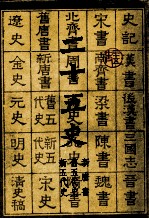 史記 漢書 後漢書 三國志 晉書
宋書 南齊書 梁書 陳書 魏書
北齊書 周書
舊唐書 新唐書 舊五代史 新五代史 宋史
遼史 金史 元史 明史 清史稿
二十五史
新唐書
新五代史